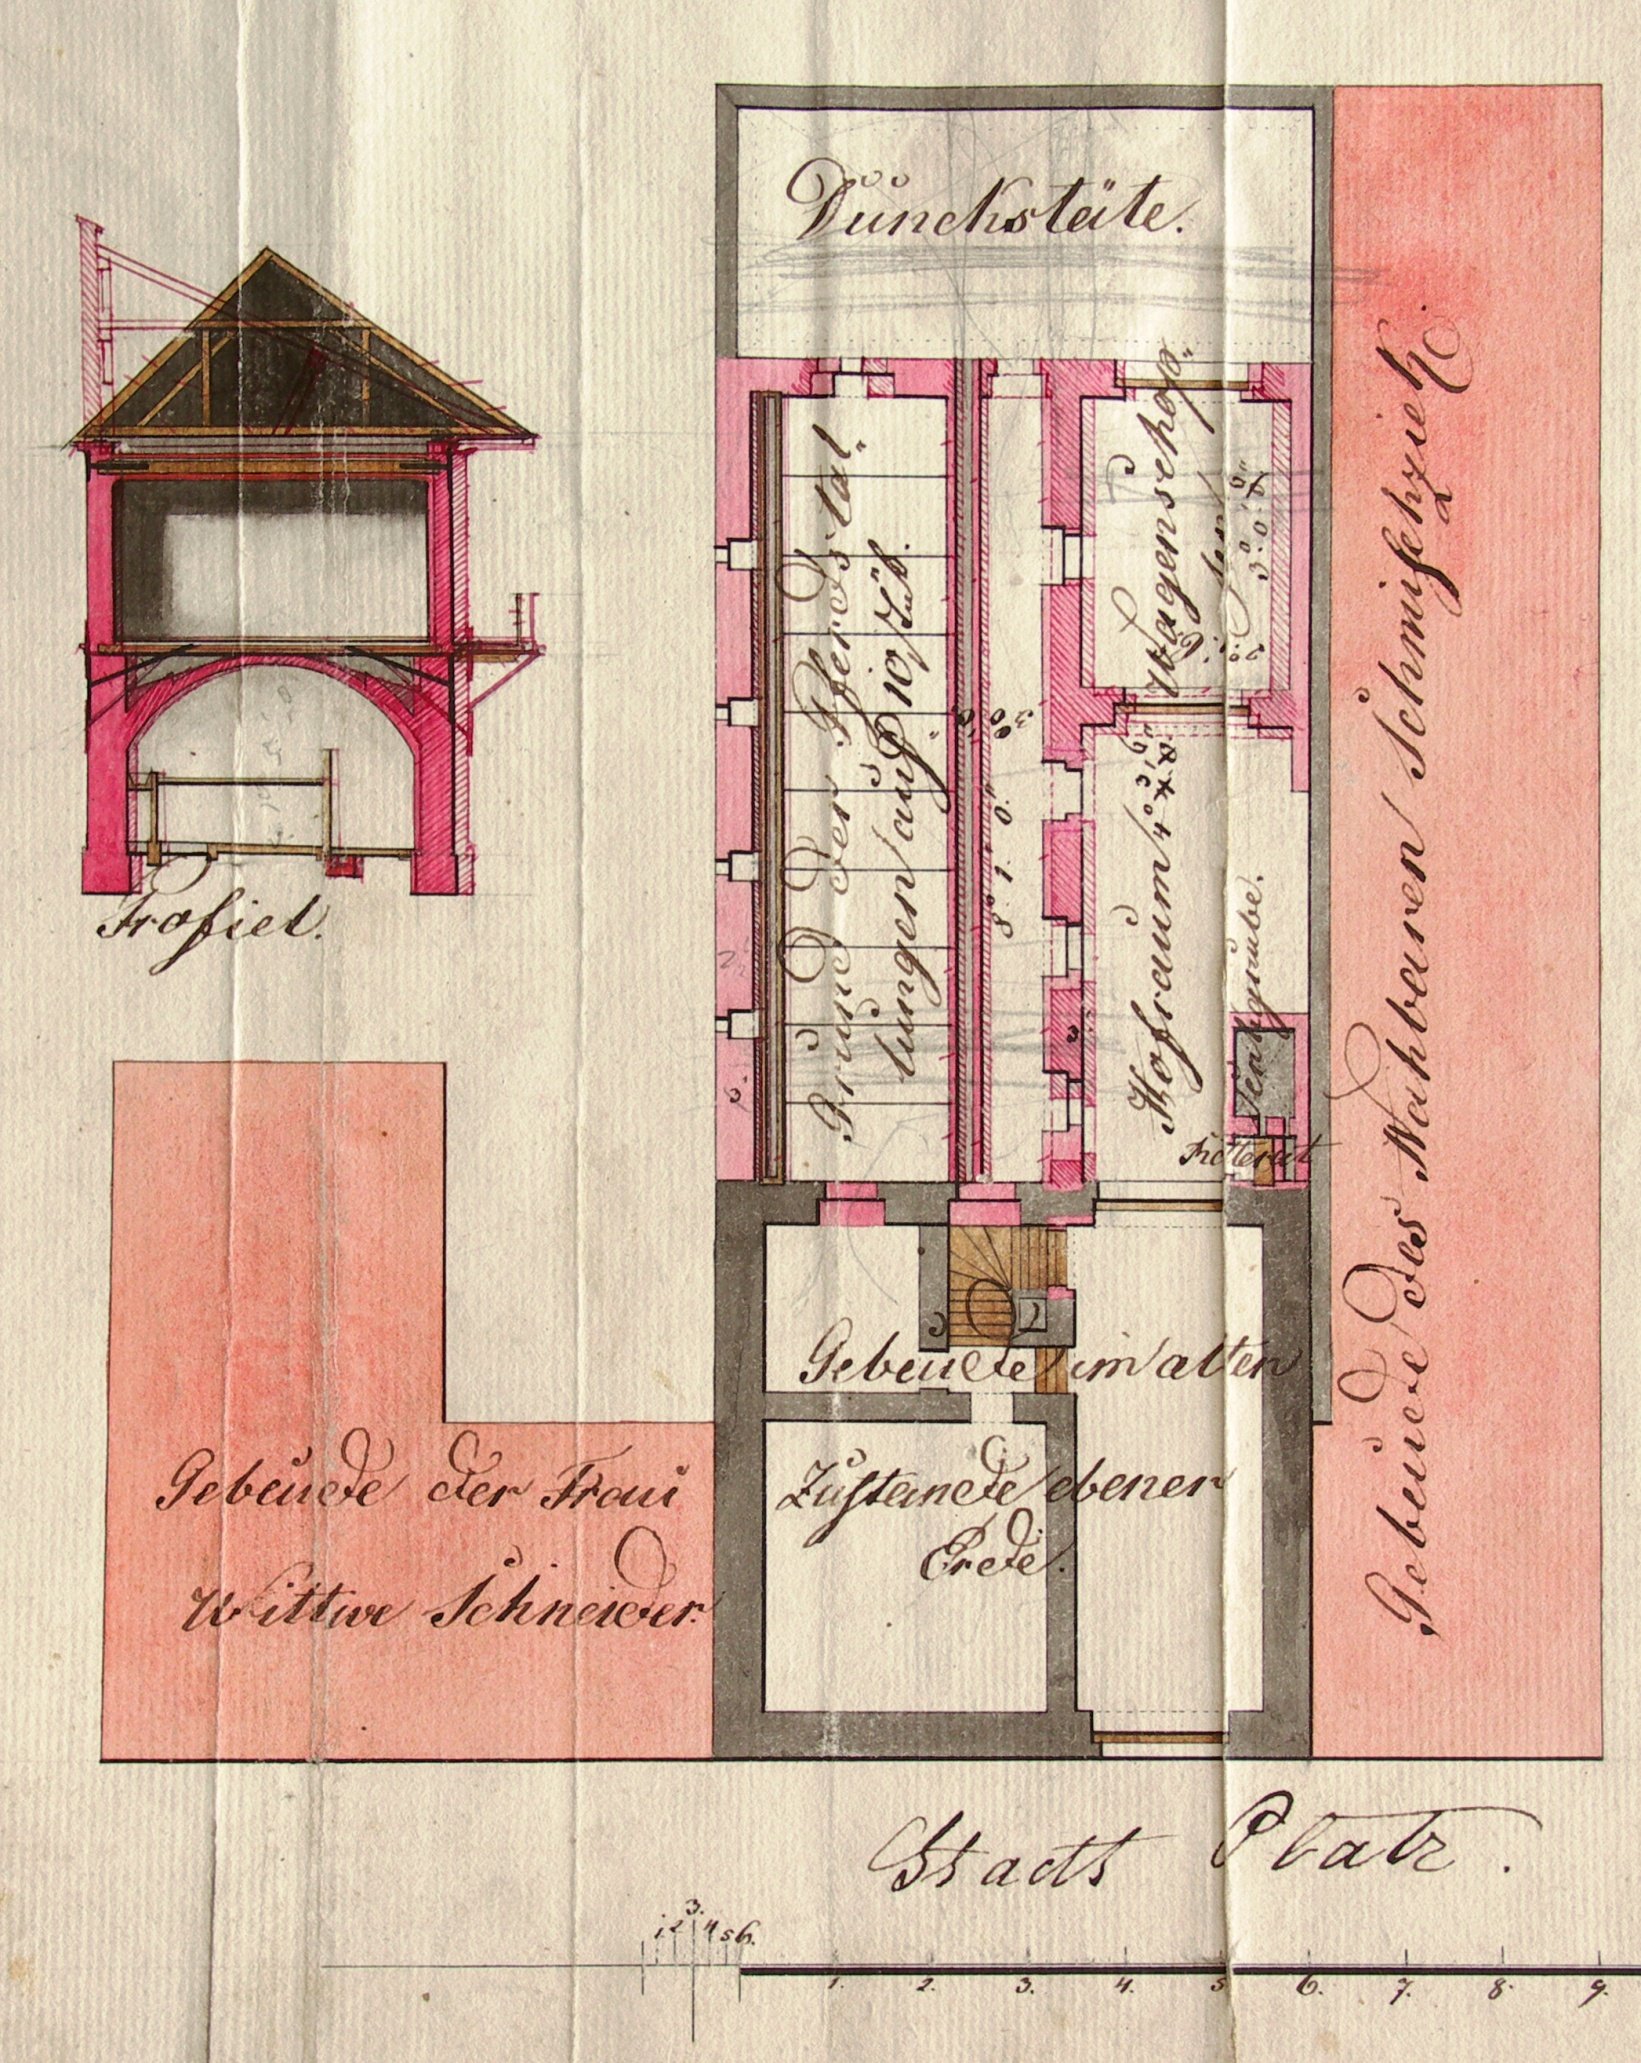 Dünckstäte.
Profiel.
Grund der Pferdstal„
lungen auf 10 Stük.
8° 1. 0."
Wagenschopf„
3° 0' 0"
Hofraum 4°
Senkgrube.
Gebeude des Nahbaren Schmischziek
Gebeude im alten
Zustande ebener
Erde.
Gebeude der Frau
Wittwe Schneider.
Stadt Platz.
1 2 3. 4 5 6.
1. 2. 3. 4. 5 6. 7. 8. 9.